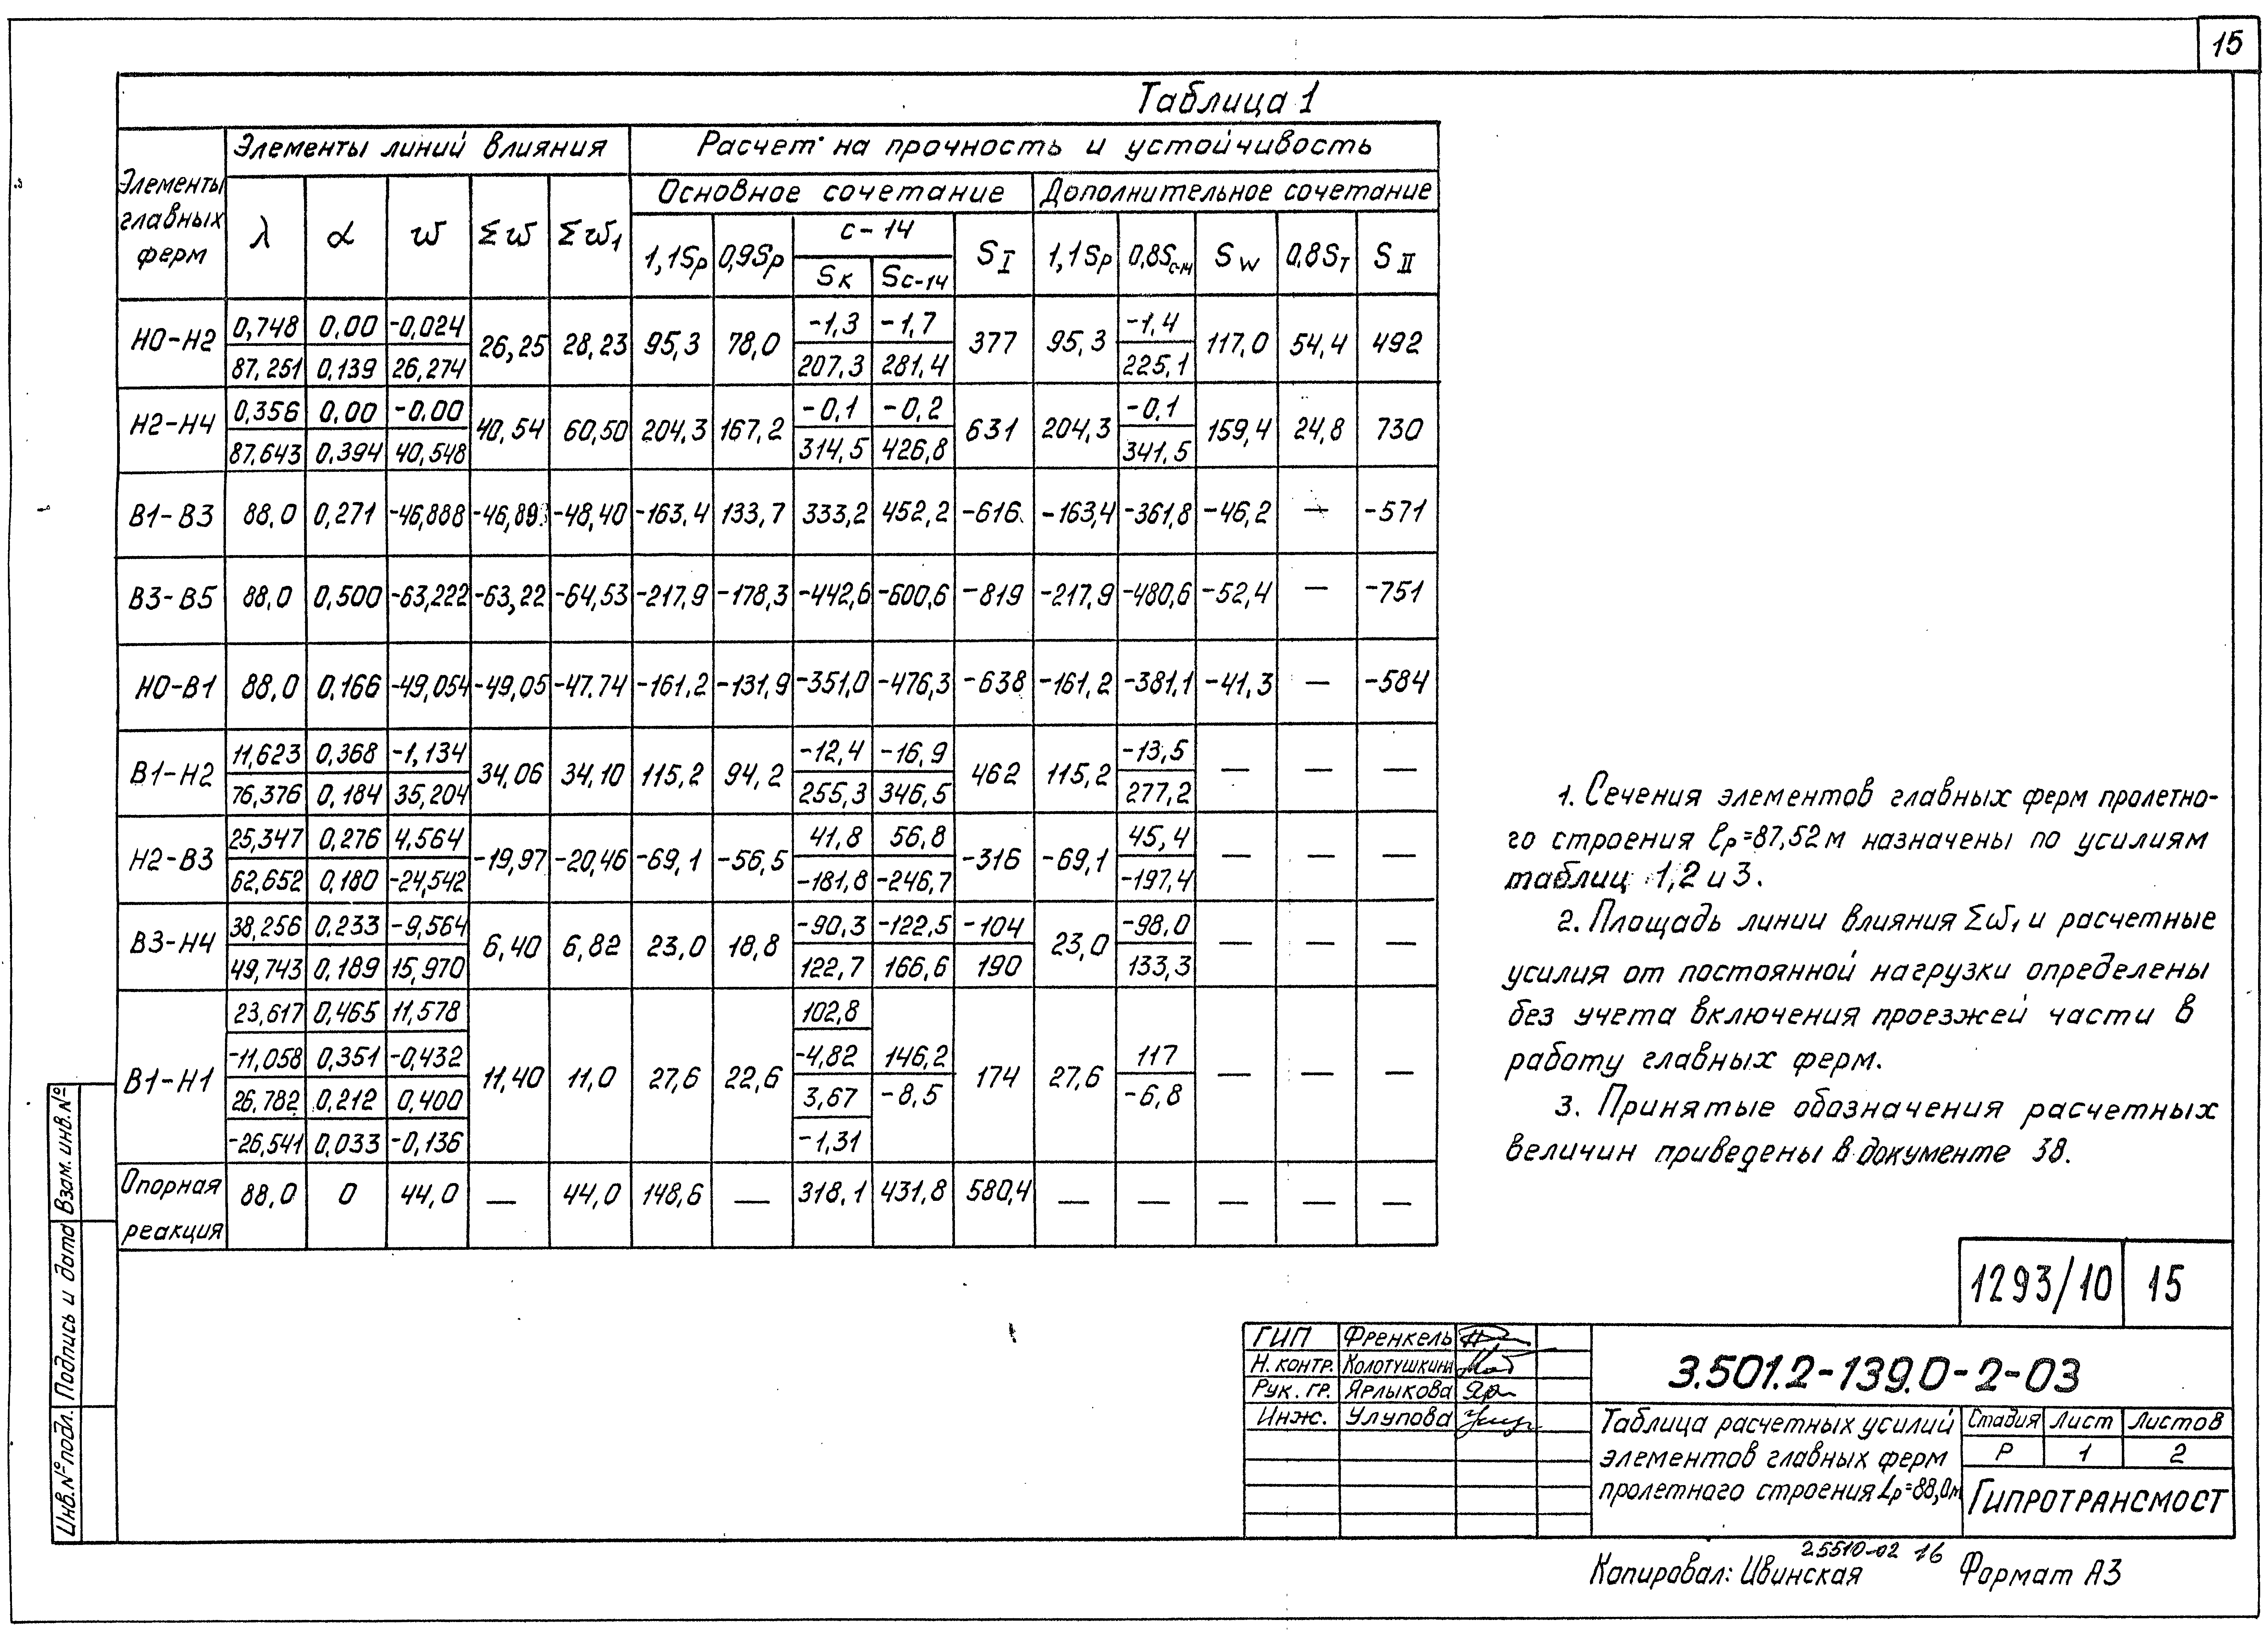 15
Таблица 1
Элементы главных ферм | Элементы линий влияния | Расчет на прочность и устойчивость
Основное сочетание | Дополнительное сочетание
λ | α | ω | Σω | Σω₁ | 1,1Sр | 0,9Sр | С-14 | S I | 1,1Sр | 0,8Sс-14 | Sw | 0,8Sт | S II
Sк | Sс-14
Н0-Н2 | 0,748 | 0,00 | -0,024 | 26,25 | 28,23 | 95,3 | 78,0 | -1,3 | -1,7 | 377 | 95,3 | -1,4 | 117,0 | 54,4 | 492
87,251 | 0,139 | 26,274 | 207,3 | 281,4 | 225,1
Н2-Н4 | 0,356 | 0,00 | -0,00 | 40,54 | 60,50 | 204,3 | 167,2 | -0,1 | -0,2 | 631 | 204,3 | -0,1 | 159,4 | 24,8 | 730
87,643 | 0,394 | 40,548 | 314,5 | 426,8 | 341,5
В1-В3 | 88,0 | 0,271 | -46,888 | -46,89 | -48,40 | -163,4 | 133,7 | 333,2 | 452,2 | -616 | -163,4 | -361,8 | -46,2 | — | -571
В3-В5 | 88,0 | 0,500 | -63,222 | -63,22 | -64,53 | -217,9 | -178,3 | -442,6 | -600,6 | -819 | -217,9 | -480,6 | -52,4 | — | -751
Н0-В1 | 88,0 | 0,166 | -49,054 | -49,05 | -47.74 | -161,2 | -131,9 | -351,0 | -476,3 | -638 | -161,2 | -381,1 | -41,3 | — | -584
В1-Н2 | 11,623 | 0,368 | -1,134 | 34,06 | 34,10 | 115,2 | 94,2 | -12,4 | -16,9 | 462 | 115,2 | -13,5 | — | — | —
76,376 | 0,184 | 35,204 | 255,3 | 346,5 | 277,2
Н2-В3 | 25,347 | 0,276 | 4,564 | -19,97 | -20,46 | -69,1 | -56,5 | 41,8 | 56,8 | -316 | -69,1 | 45,4 | — | — | —
62,652 | 0,180 | -24,542 | -181,8 | -246,7 | -197,4
В3-Н4 | 38,256 | 0,233 | -9,564 | 6,40 | 6,82 | 23,0 | 18,8 | -90,3 | -122,5 | -104 | 23,0 | -98,0 | — | — | —
49,743 | 0,189 | 15,970 | 122,7 | 166,6 | 190 | 133,3
В1-Н1 | 23,617 | 0,465 | 11,578 | 11,40 | 11,0 | 27,6 | 22,6 | 102,8 | 146,2 | 174 | 27,6 | 117 | — | — | —
-11,058 | 0,351 | -0,432 | -4,82 | -8,5 | -6,8
26,782 | 0,212 | 0,400 | 3,67
-26,541 | 0,033 | -0,136 | -1,31
Опорная реакция | 88,0 | 0 | 44,0 | — | 44,0 | 148,6 | — | 318,1 | 431,8 | 580,4 | — | — | — | — | —
1. Сечения элементов главных ферм пролетно-
го строения ℓр=87,52 м назначены по усилиям
таблиц 1,2 и 3.
2. Площадь линии влияния Σω₁ и расчетные
усилия от постоянной нагрузки определены
без учета включения проезжей части в
работу главных ферм.
3. Принятые обозначения расчетных
величин приведены в документе 38.
1293/10 | 15
ГИП | Френкель
Н. контр. | Колотушкина
Рук. гр. | Ярлыкова
Инж. | Улупова
3.501.2-139.0-2-03
Таблица расчетных усилий
элементов главных ферм
пролетного строения Lр=88,0м
Стадия | Лист | Листов
Р | 1 | 2
Гипротрансмост
25510-02 16
Копировал: Ивинская Формат А3
Инв. № подл. | Подпись и дата | Взам. инв. №